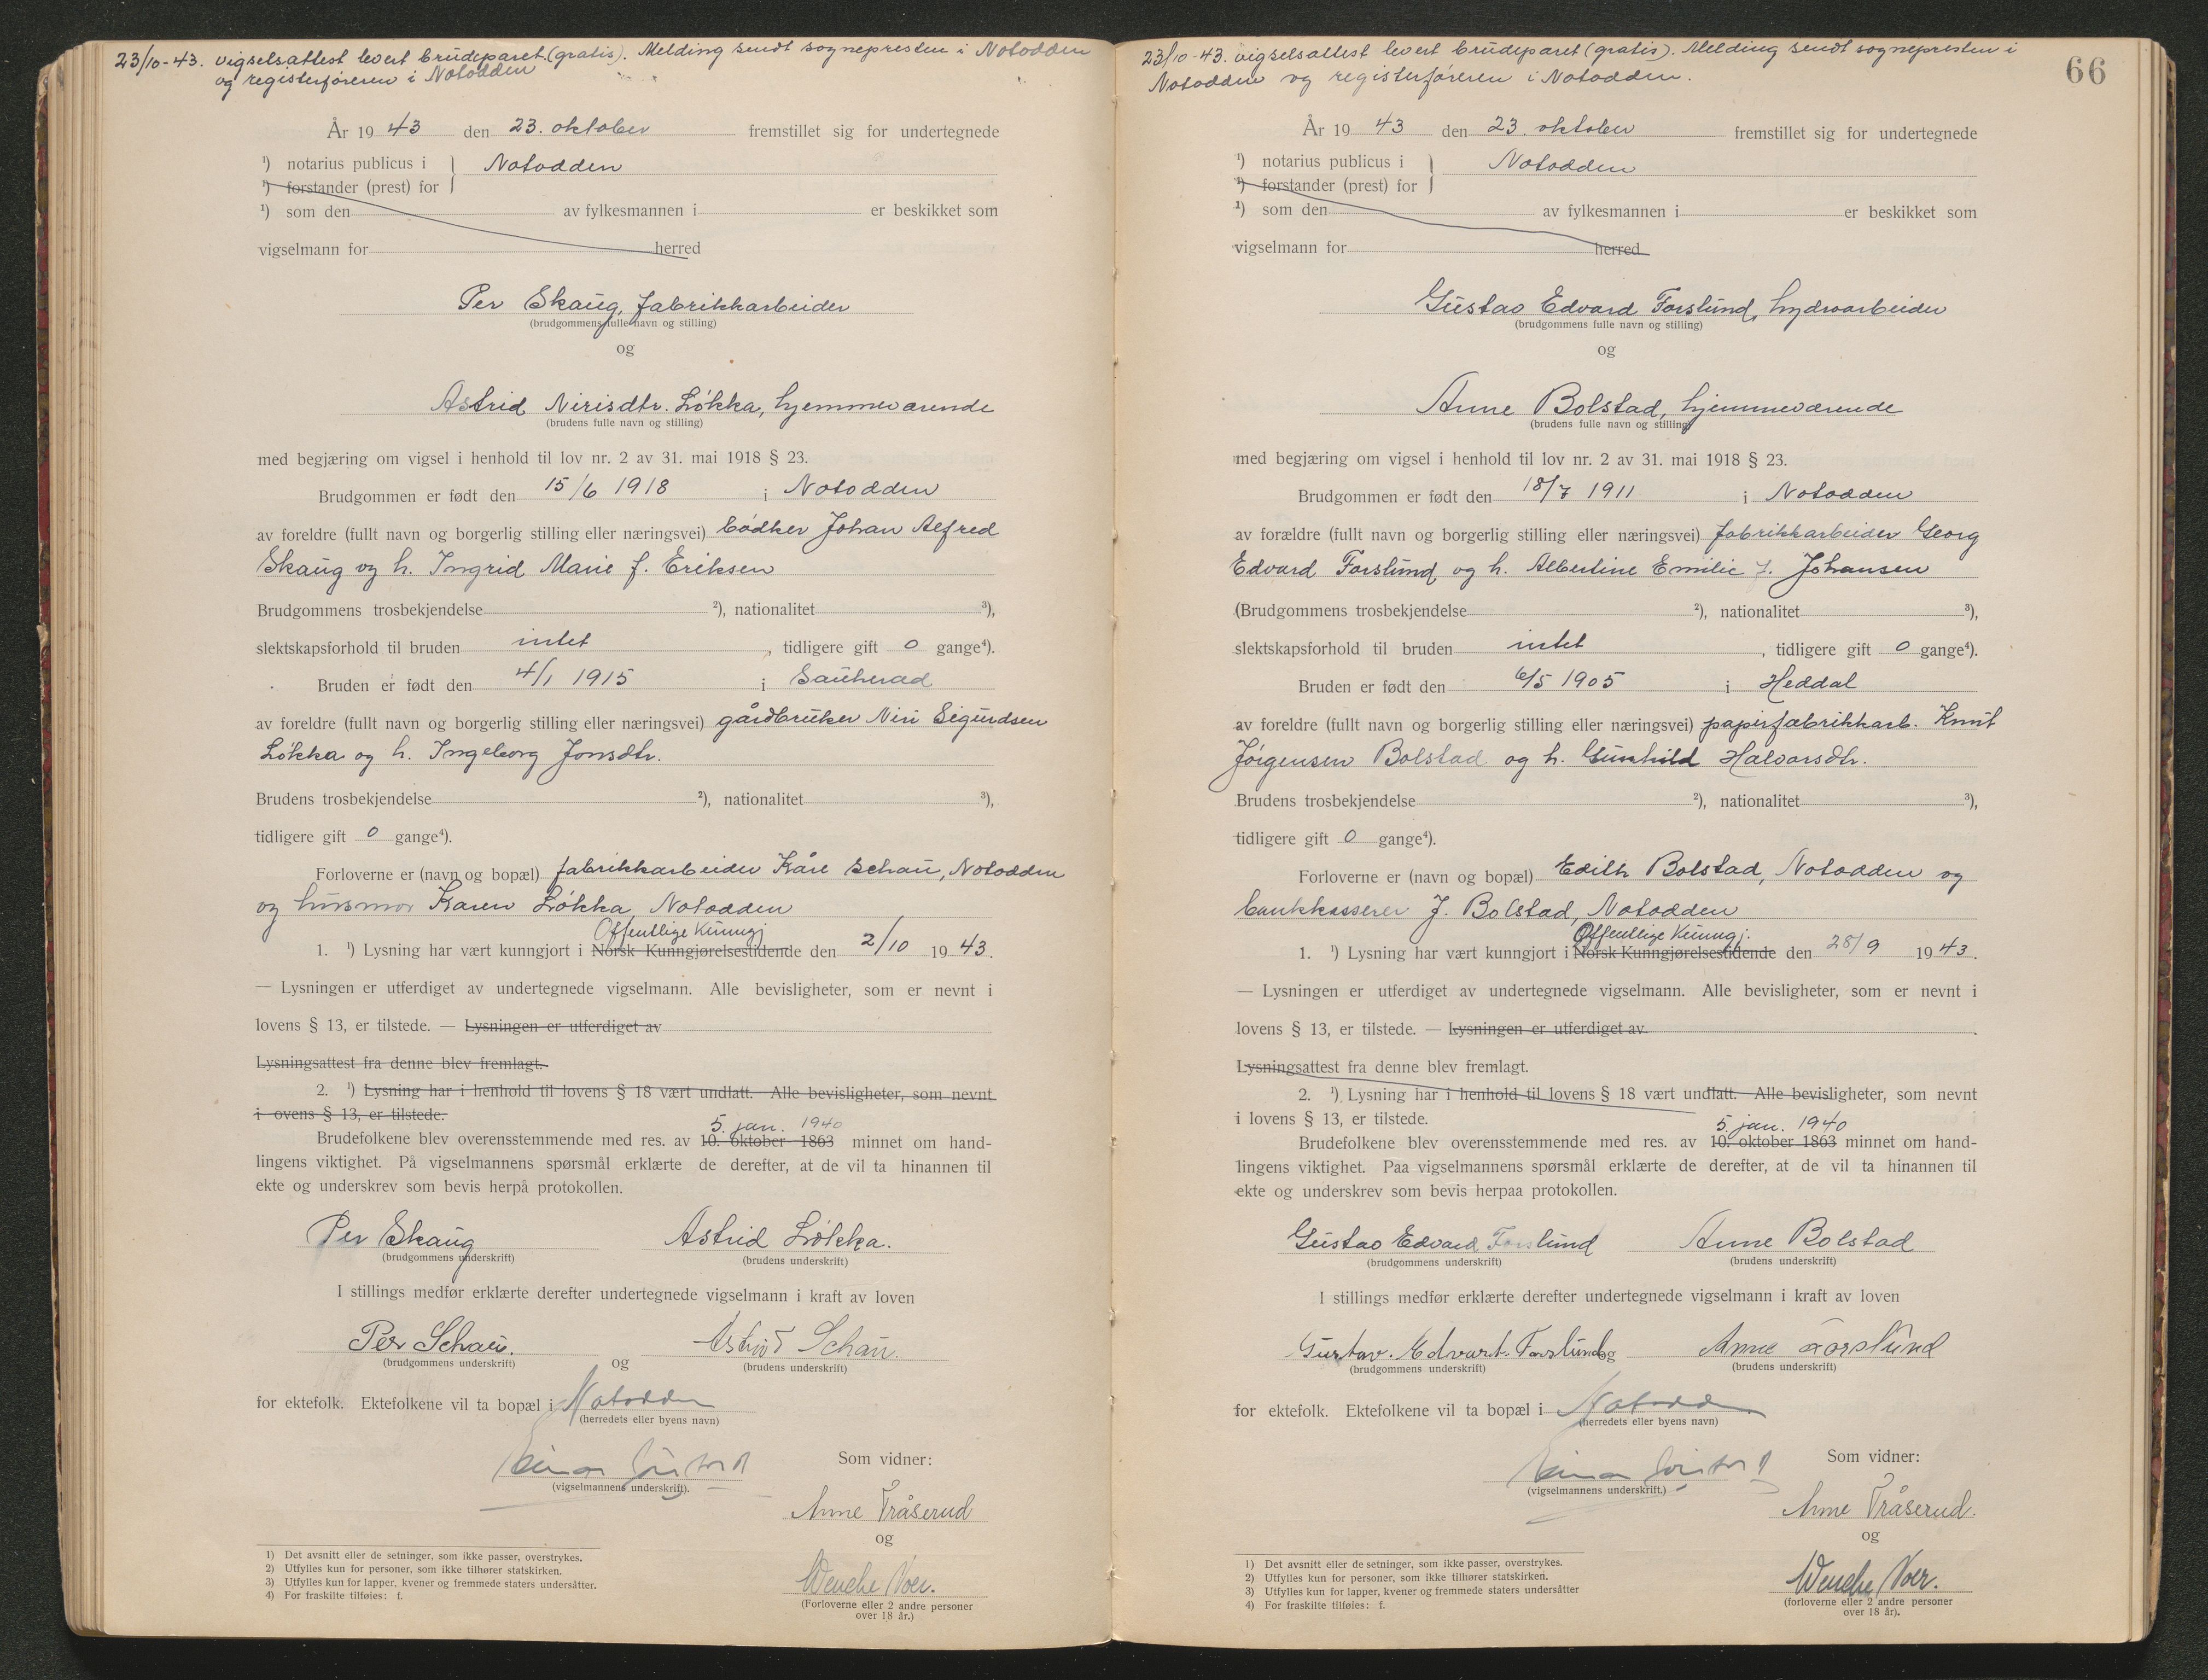 23/10-43. vigselsattest levert brudeparet (gratis). Melding sendt sognepresten i Notodden
og registerføreren i Notodden
År 1943 den 23. oktober fremstillet sig for undertegnede
¹) notarius publicus i } Notodden
¹) forstander (prest) for
¹) som den av fylkesmannen i er beskikket som
vigselmann for herred
Per Skaug, fabrikkarbeider
(brudgommens fulle navn og stilling)
og
Astrid Nirisdtr. Løkka, hjemmeværende
(brudens fulle navn og stilling)
med begjæring om vigsel i henhold til lov nr. 2 av 31. mai 1918 § 23.
Brudgommen er født den 15/6 1918 i Notodden
av foreldre (fullt navn og borgerlig stilling eller næringsvei) bødker Johan Alfred
Skaug og h. Ingrid Marie f. Eriksen
Brudgommens trosbekjendelse ²), nationalitet ³),
slektskapsforhold til bruden intet, tidligere gift 0 gange⁴).
Bruden er født den 4/1 1915 i Sauherad
av foreldre (fullt navn og borgerlig stilling eller næringsvei) gårdbruker Niri Sigurdsen
Løkka og h. Ingeborg Jonsdtr.
Brudens trosbekjendelse ²), nationalitet ³),
tidligere gift 0 gange⁴).
Forloverne er (navn og bopæl) fabrikkarbeider Kåre Schau, Notodden
og husmor Karen Løkka, Notodden
Offentlige Kunngj
1. ¹) Lysning har vært kunngjort i Norsk Kunngjørelsestidende den 2/10 1943.
— Lysningen er utferdiget av undertegnede vigselmann. Alle bevisligheter, som er nevnt i
lovens § 13, er tilstede. — Lysningen er utferdiget av
Lysningsattest fra denne blev fremlagt.
2. ¹) Lysning har i henhold til lovens § 18 vært undlatt. Alle bevisligheter, som nevnt
i ovens § 13, er tilstede.
5. jan. 1940
Brudefolkene blev overensstemmende med res. av 10. oktober 1863 minnet om hand-
lingens viktighet. På vigselmannens spørsmål erklærte de derefter, at de vil ta hinannen til
ekte og underskrev som bevis herpå protokollen.
Per Skaug Astrid Løkka.
(brudgommens underskrift) (brudens underskrift)
I stillings medfør erklærte derefter undertegnede vigselmann i kraft av loven
Per Schau. og Astrid Schau.
(brudgommens underskrift) (brudens underskrift)
for ektefolk. Ektefolkene vil ta bopæl i Notodden
(herredets eller byens navn)
Som vidner:
(vigselmannens underskrift).
Anne Tråserud
og
Wenche Voer.
(Forloverne eller 2 andre personer
over 18 år.)
1) Det avsnitt eller de setninger, som ikke passer, overstrykes.
2) Utfylles kun for personer, som ikke tilhører statskirken.
3) Utfylles kun for lapper, kvener og fremmede staters undersåtter.
4) For fraskilte tilføies: f.
66
23/10-43. vigselsattest levert brudeparet (gratis). Melding sendt sognepresten i
Notodden og registerføreren i Notodden.
År 1943 den 23. oktober fremstillet sig for undertegnede
¹) notarius publicus i } Notodden
¹) forstander (prest) for
¹) som den av fylkesmannen i er beskikket som
vigselmann for herred
Gustav Edvard Forslund, hydroarbeider
(brudgommens fulle navn og stilling)
og
Anne Bolstad, hjemmeværende
(brudens fulle navn og stilling)
med begjæring om vigsel i henhold til lov nr. 2 av 31. mai 1918 § 23.
Brudgommen er født den 18/7 1911 i Notodden
av forældre (fullt navn og borgerlig stilling eller næringsvei) fabrikkarbeider Georg
Edvard Forslund og h. Albertine Emilie f. Johansen
(Brudgommens trosbekjendelse ²), nationalitet ³),
slektskapsforhold til bruden intet, tidligere gift 0 gange⁴).
Bruden er født den 6/5 1905 i Heddal
av foreldre (fullt navn og borgerlig stilling eller næringsvei) papirfabrikkarb. Knut
Jørgensen Bolstad og h. Gunhild Halvorsdtr.
Brudens trosbekjendelse ²), nationalitet ³),
tidligere gift 0 gange⁴).
Forloverne er (navn og bopæl) Edith Bolstad, Notodden og
bankkasserer J. Bolstad, Notodden
Offentlige Kunngj.
1. ¹) Lysning har vært kunngjort i Norsk Kunngjørelsestidende den 28/9 1943.
— Lysningen er utferdiget av undertegnede vigselmann. Alle bevisligheter, som er nevnt i
lovens § 13, er tilstede. — Lysningen er utferdiget av
Lysningsattest fra denne blev fremlagt.
2. ¹) Lysning har i henhold til lovens § 18 vært undlatt. Alle bevisligheter, som nevnt
i lovens § 13, er tilstede.
5. jan. 1940
Brudefolkene blev overensstemmende med res. av 10. oktober 1863 minnet om hand-
lingens viktighet. Paa vigselmannens spørsmål erklærte de derefter, at de vil ta hinannen til
ekte og underskrev som bevis herpaa protokollen.
Gustav Edvard Forslund Anne Bolstad
(brudgommens underskrift) (brudens underskrift)
I stillings medfør erklærte derefter undertegnede vigselmann i kraft av loven
Gustav. Edvart. Forslund og Anne Forslund
(brudgommens underskrift) (brudens underskrift)
for ektefolk. Ektefolkene vil ta bopæl i Notodden
(herredets eller byens navn)
Som vidner:
(vigselmannens underskrift.)
Anne Tråserud.
og
Wenche Voer.
(forloverne eller 2 andre personer
over 18 år).
1) Det avsnitt eller de setninger, som ikke passer, overstrykes.
2) Utfylles kun for personer, som ikke tilhører statskirken.
3) Utfylles kun for lapper, kvener og fremmede staters undersåtter
4) For fraskilte tilføies: f.